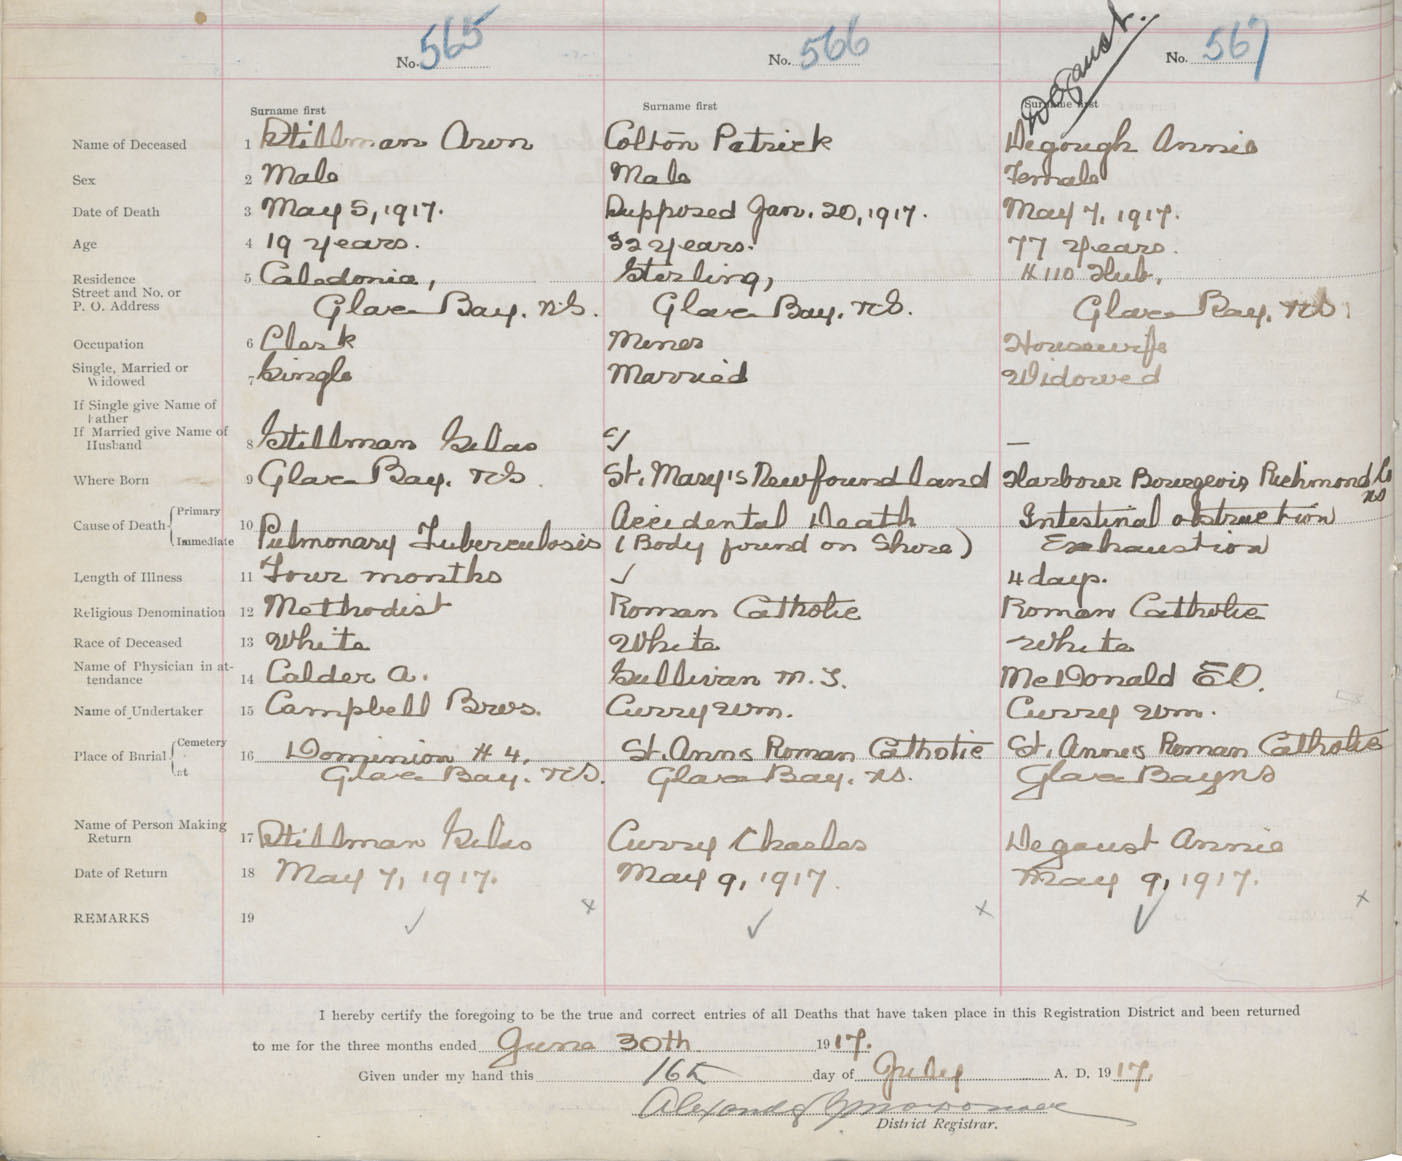 No. 565 No. 566 Degaust. No. 567
Surname first Surname first Surname first
Name of Deceased 1 Stillman Aron Colton Patrick Degough Annie
Sex 2 Male Male Female
Date of Death 3 May 5, 1917. Supposed Jan. 20, 1917. May 7, 1917.
Age 4 19 years. 32 years. 77 years.
Residence 5 Caledonia, Sterling, #110 Hub,
Street and No. or
P. O. Address Glace Bay. N.S. Glace Bay. N.S. Glace Bay. N.S.
Occupation 6 Clerk Miner Housewife
Single, Married or
Widowed 7 Single Married Widowed
If Single give Name of
Father
If Married give Name of
Husband 8 Stillman Silas ✓ —
Where Born 9 Glace Bay. N.S. St. Mary's Newfoundland Harbour Bourgeois Richmond Co NS
Cause of Death Primary 10 Accidental Death Intestinal obstruction
Immediate Pulmonary Tuberculosis (Body found on Shore) Exhaustion
Length of Illness 11 Four months ✓ 4 days.
Religious Denomination 12 Methodist Roman Catholic Roman Catholic
Race of Deceased 13 White White White
Name of Physician in at-
tendance 14 Calder A. Sullivan M. T. McDonald E.O.
Name of Undertaker 15 Campbell Bros. Curry Wm. Curry Wm.
Place of Burial Cemetery 16 Dominion #4, St. Anns Roman Catholic St. Anne's Roman Catholic
at Glace Bay. N.S. Glace Bay. NS. Glace Bay NS
Name of Person Making
Return 17 Stillman Silas Curry Charles Degaust Annie
Date of Return 18 May 7, 1917. May 9, 1917. May 9, 1917.
REMARKS 19 ✓ x ✓ x ✓ x
I hereby certify the foregoing to be the true and correct entries of all Deaths that have taken place in this Registration District and been returned
to me for the three months ended June 30th 1917.
Given under my hand this 16th day of July A. D. 1917.
District Registrar.